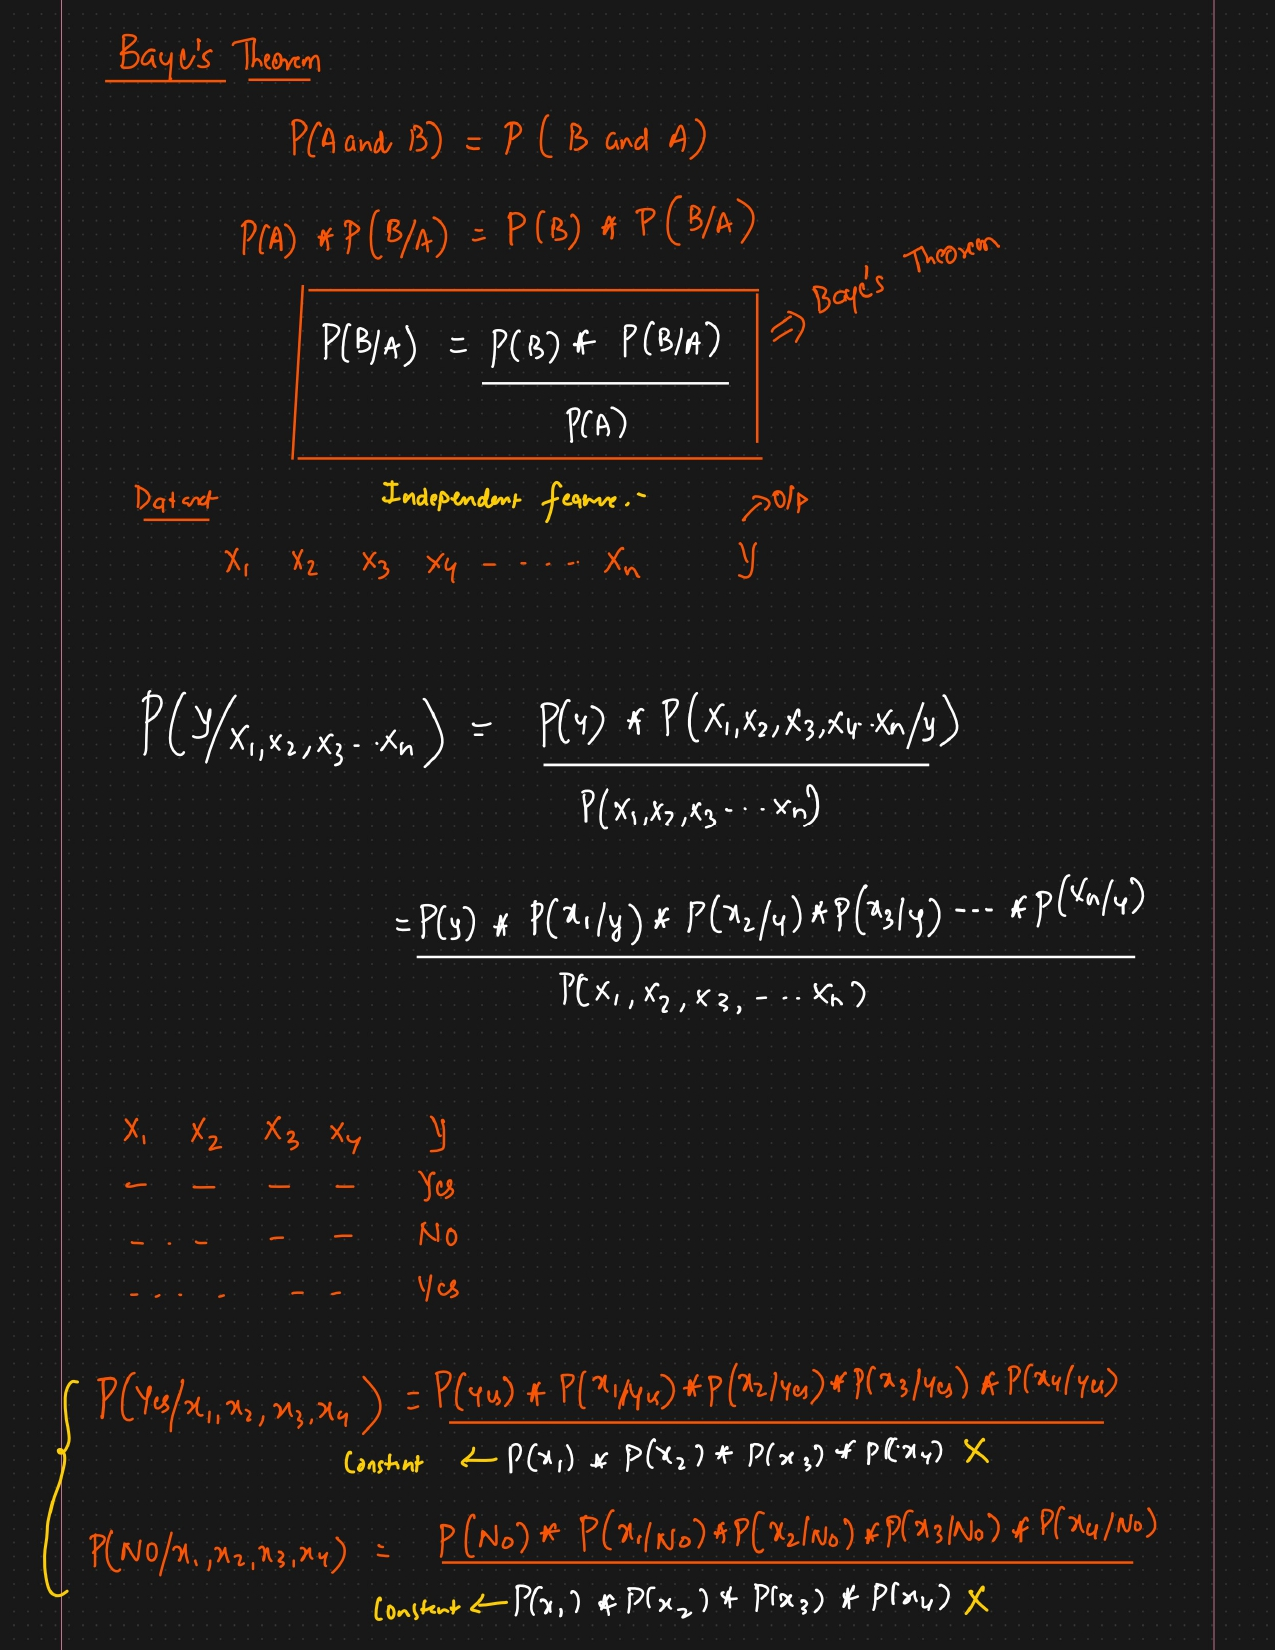 Baye's Theorem
P(A and B) = P ( B and A)
P(A) * P(B/A) = P(B) * P(B/A)
P(B/A) = P(B) * P(B/A)
P(A)
⇒ Baye's Theorem
Dataset Independent feature :-
→ O/P
X1 X2 X3 X4 - - - - - Xn y
P(y/x1,x2,x3 - - xn) = P(y) * P(x1,x2,x3,x4 - - xn/y)
P(x1,x2,x3 - - - - xn)
= P(y) * P(x1/y) * P(x2/y) * P(x3/y) --- * P(xn/y)
P(x1, x2, x3, - - - - xn)
X1 X2 X3 X4 y
- - - - Yes
- - - - - NO
- - - - - - - Yes
P(Yes/x1,x2,x3,x4) = P(yes) * P(x1/yes) * P(x2/yes) * P(x3/yes) * P(x4/yes)
Constant ← P(x1) * P(x2) * P(x3) * P(x4) X
P(NO/x1,x2,x3,x4) = P(No) * P(x1/No) * P(x2/No) * P(x3/No) * P(x4/No)
Constant ← P(x1) * P(x2) * P(x3) * P(x4) X